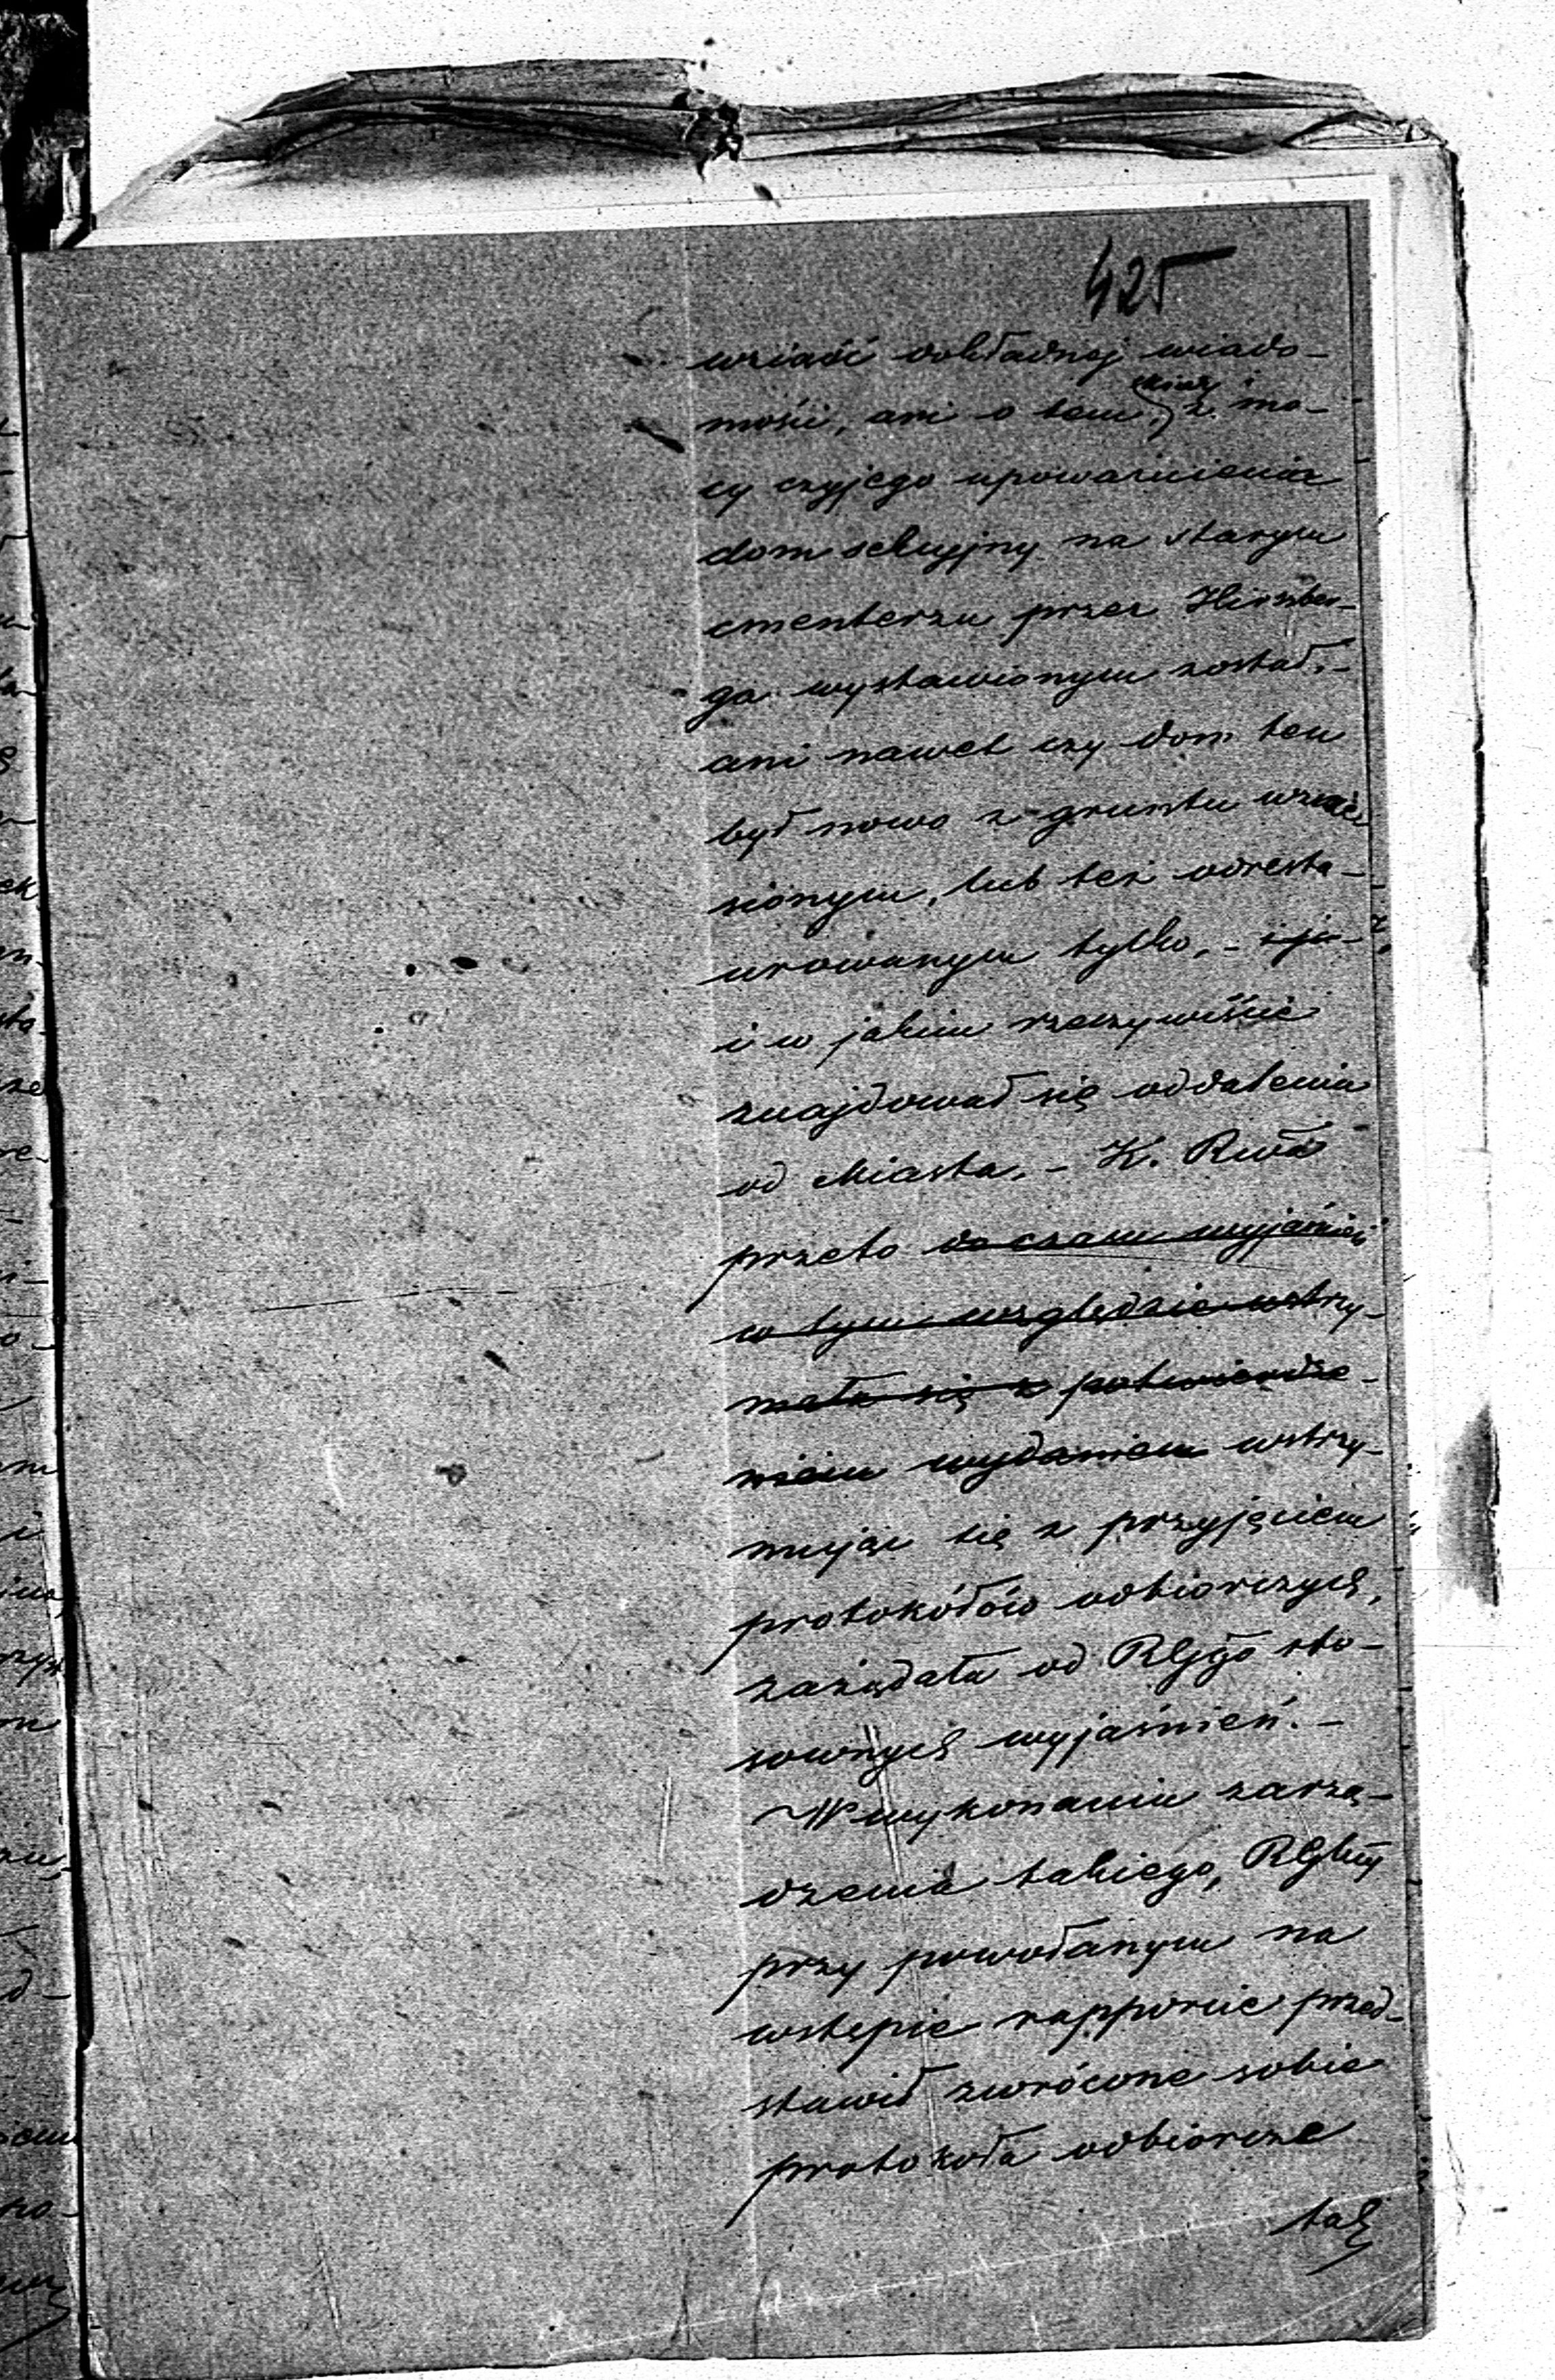 425
wziąść dokładnej wiado-
mości, ani o tem, z mo-
cy czyjego upoważnienia
dom sekcyjny na starym
cmentarzu przez Hirszber-
ga wystawionym został,-
ani nawet czy dom ten
był nowo z gruntu wznie-
sionym, lub też odresta-
urowanym tylko, -
i w jakim rzeczywiście
znajdował się oddaleniu
od Miasta. - K. Rwa
przeto do czasu wyjaśnień
w tym względzie wstrzy-
mała się z potwierdze-
niem wydaniem wstrzy-
mując się z przyjęciem
protokółów odbiorczych,
zażądała od RGgo sto-
sownych wyjaśnień. -
W wykonaniu zarzą-
dzenia takiego, RGbny
przy powołanym na
wstępie rapporcie przed-
stawił zwrócone sobie
protokoła odbiorcze
tak